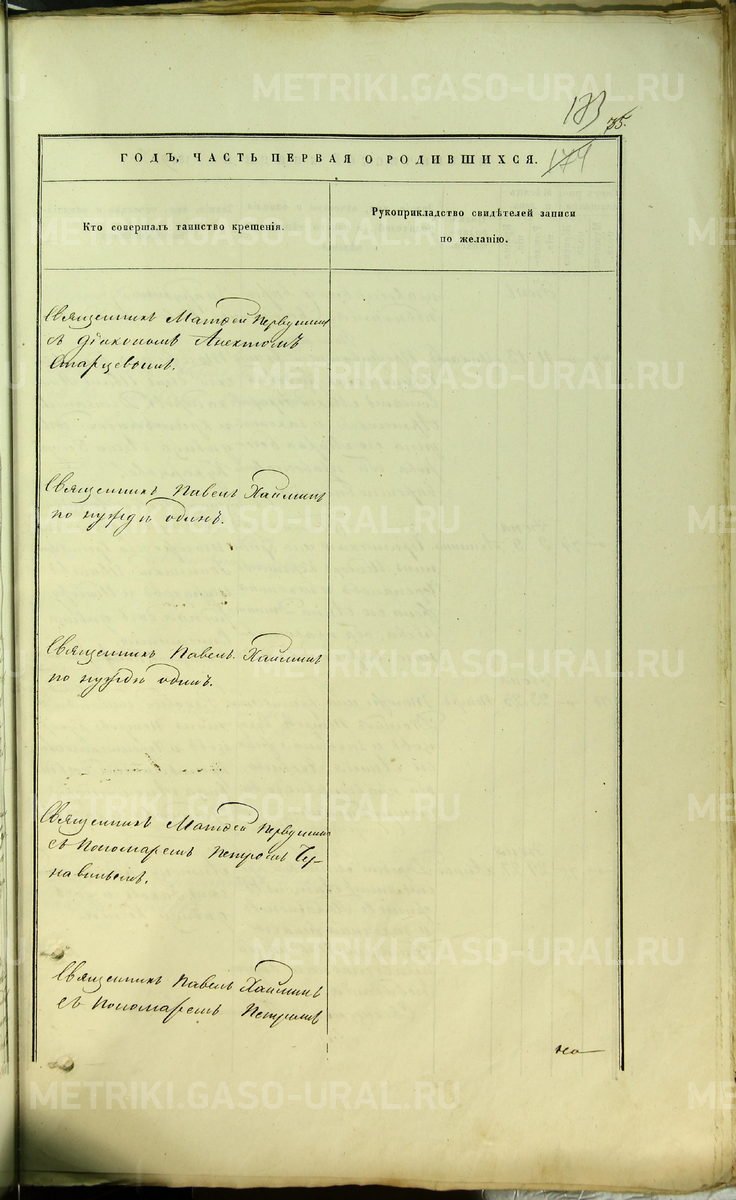 METRIKI.GASO-URAL.RU
173
35.
174
ГОДЪ, ЧАСТЬ ПЕРВАЯ О РОДИВШИХСЯ.
Кто совершалъ таинство крещенія.
Рукоприкладство свидѣтелей записи
по желанію.
Священникъ Матѳей Первушинъ
съ діакономъ Анектомъ
Старцевымъ.
Священникъ Павелъ Хайминъ
по нуждѣ одинъ.
Священникъ Павелъ Хайминъ
по нуждѣ одинъ.
Священникъ Матѳей Первушинъ
съ Пономаремъ Петромъ Чу-
навинымъ.
Священникъ Павелъ Хайминъ
съ Пономаремъ Петромъ